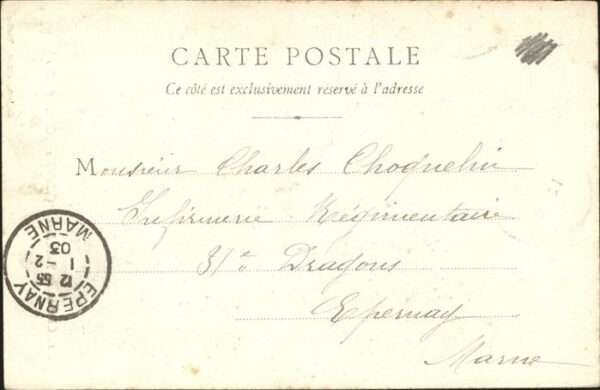 CARTE POSTALE
Ce côté est exclusivement réservé à l'adresse
Monsieur Charles Choquelin
Infirmerie Régimentaire
31e Dragons
Epernay
Marne
EPERNAY
12 55
1 - 2
03
MARNE